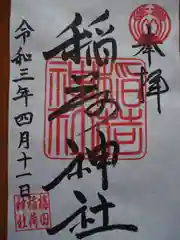 奉拝
稲荷神社
稲荷
神社
令和三年四月十一日
稲荷
神社